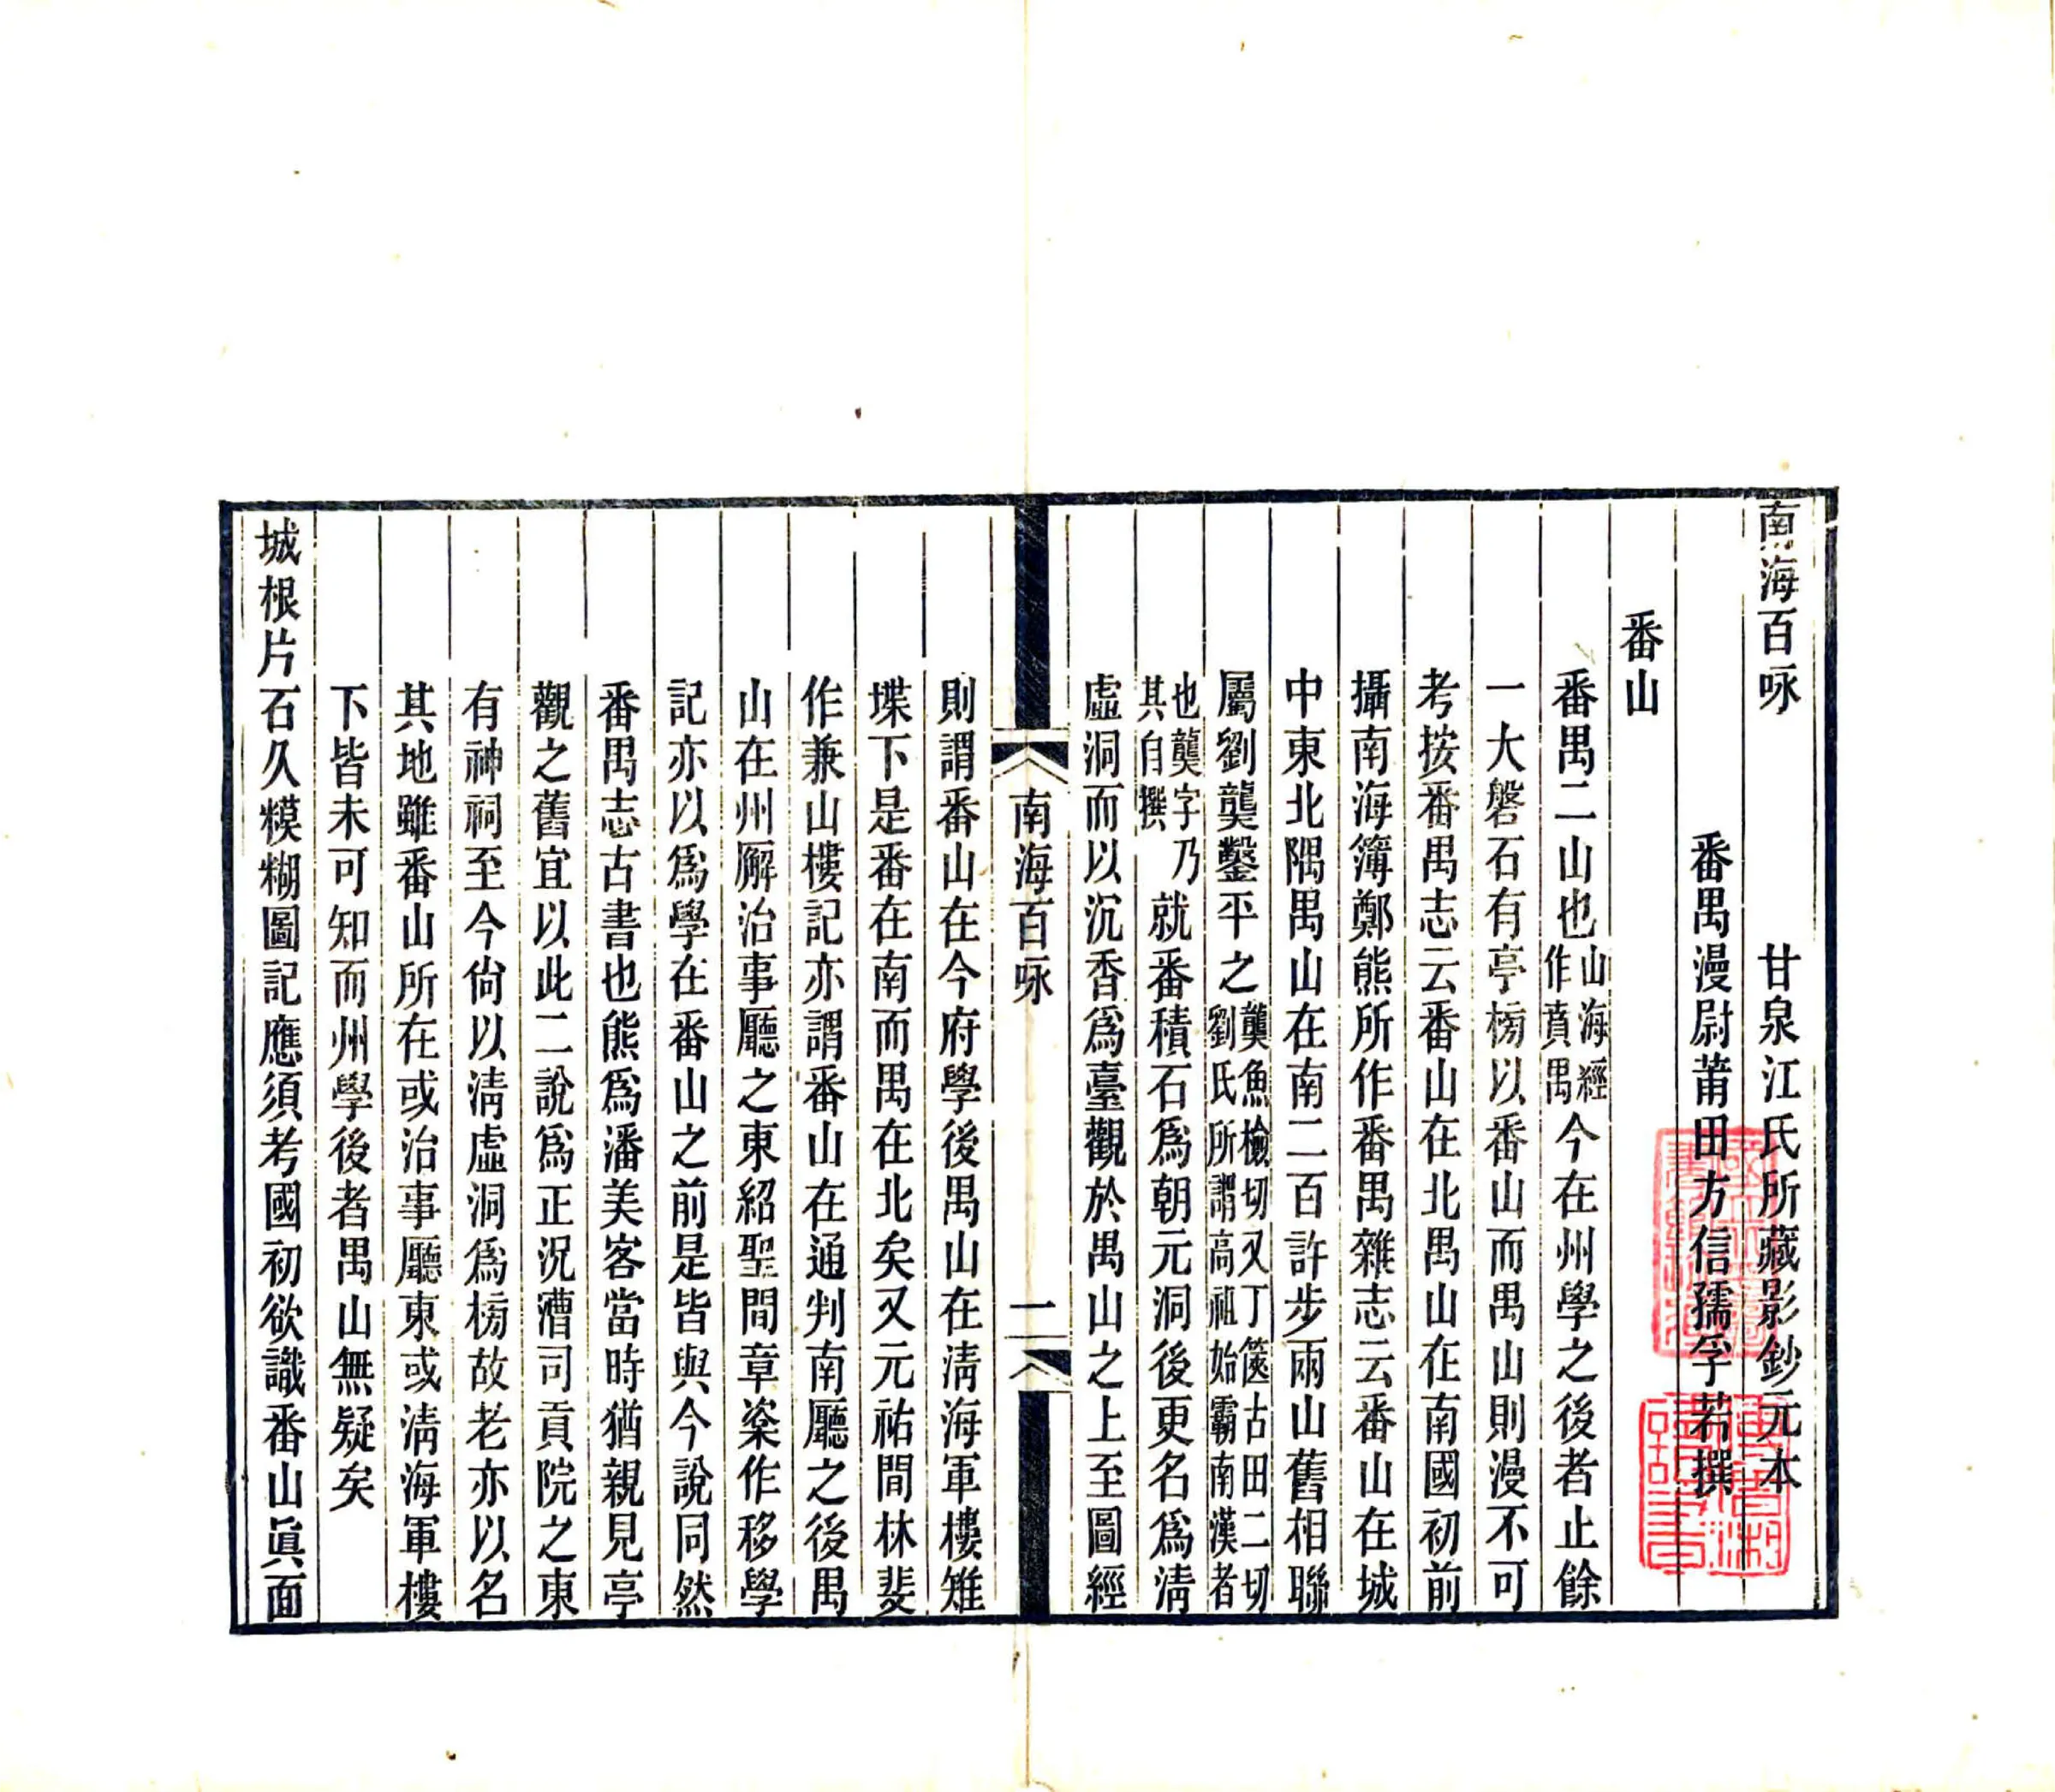 南海百咏　甘泉江氏所藏影鈔元本
番禺漫尉莆田方信孺孚若撰
番山
番禺二山也山海經作賁禺今在州學之後者止餘
一大磐石有亭榜以番山而禺山則漫不可
考按番禺志云番山在北禺山在南國初前
攝南海簿鄭熊所作番禺雜志云番山在城
中東北隅禺山在南二百許步兩山舊相聯
屬劉龑鑿平之龑魚檢切又丁篋古田二切劉氏所謂高祖始霸南漢者
也龑字乃其自撰就番積石爲朝元洞後更名爲清
虛洞而以沉香爲臺觀於禺山之上至圖經
南海百咏　一
則謂番山在今府學後禺山在清海軍樓雉
堞下是番在南而禺在北矣又元祐間林斐
作兼山樓記亦謂番山在通判南廳之後禺
山在州廨治事廳之東紹聖間章楶作移學
記亦以爲學在番山之前是皆與今說同然
番禺志古書也熊爲潘美客當時猶親見亭
觀之舊宜以此二說爲正況漕司貢院之東
有神祠至今尙以清虛洞爲榜故老亦以名
其地雖番山所在或治事廳東或清海軍樓
下皆未可知而州學後者禺山無疑矣
城根片石久糢糊圖記應須考國初欲識番山眞面